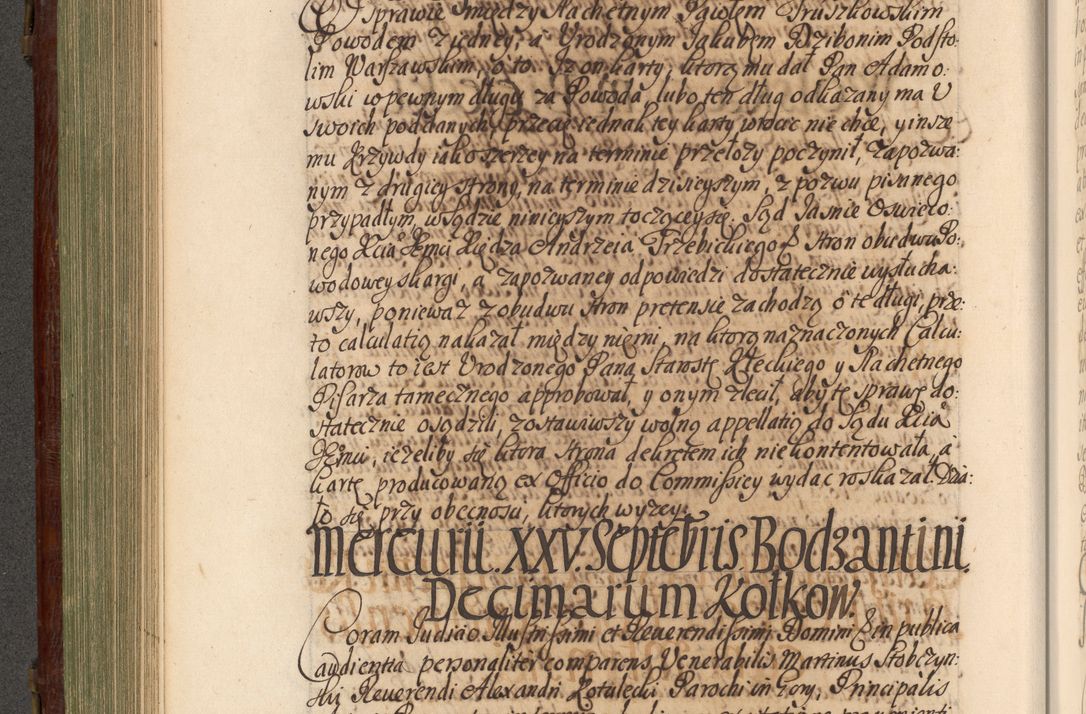 W sprawie między Slachetnym Pawłem Truszkowskim
Powodem z iedney, a Urodzonym Jakubem Dzibonim Podsto:
lim Warszawskim, o to. Iz on karty, ktorą mu dał Pan Adamo:
wski w pewnym długu za Powoda, lubo ten dług odkazany ma V
swoich poddanych, przecię iednak tey karty wrocic nie chce, y insze
mu krzywdy iako szerzey na terminie przełozy poczynił, zapozwa:
nym z drugiey strony, na terminie dzisieyszym, z pozwu pisanego
przypadłym, w sądzie ninieyszym toczącey się. Sąd Jasnie Oswieco:
nego Xcia Jemci Xiędza Andrzeia Trzebickiego & stron obiedwu Po:
wodowey skargi, a zapozwaney odpowiedzi dostatecznie wysłucha:
wszy, poniewaz z obudwu stron pretensie zachodzą o te długi, prze:
to calculatią nakazał między niemi, na ktorą naznaczonych Calcu:
latorow to iest Urodzonego Pana Starostę Kłeckiego y Slachetnego
Pisarza tamecznego approbował, y onym zlecił, aby tę sprawę do:
statecznie osądzili, zostawiwszy wolną appellatią do Sądu Xcia
Jemci, iezeliby się ktora strona dekretem ich niekontentowała, a
kartę producowaną ex Officio do Commissiey wydac roskazał. Dzia:
ło się przy obecnosci, ktorych wyzey.
Mercurii. XXV. Septebris Bodzantini.
Decimarum Kołkow.
Coram Judicio Illustrissimi et Reverendissimi Domini & in publica
audientia personaliter comparens, Venerabilis Martinus Stobczyn:
ski Reverendi Alexandri Kotulecki Parochi in Gory, Principalis